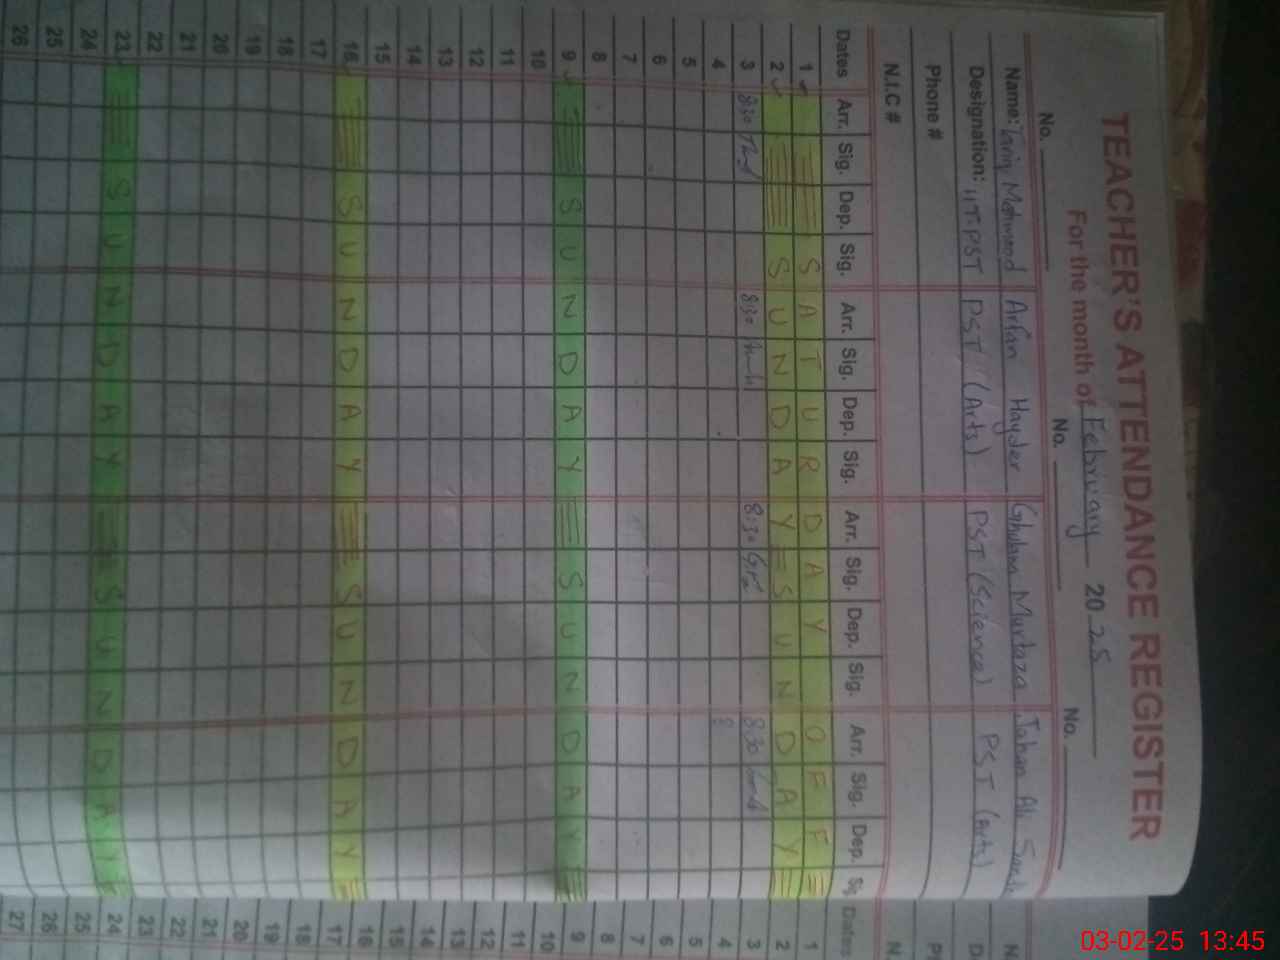 TEACHER'S ATTENDANCE REGISTER
For the month of February 2025
No. No. No.
Name: Tariq Mahmood Arfan Hayder Ghulam Murtaza Jahan Ali
Designation: PST (Arts) PST (Science) PST (Arts)
Phone #
N.I.C #
Dates Arr. Sig. Dep. Sig. Arr. Sig. Dep. Sig. Arr. Sig. Dep. Sig. Arr. Sig. Dep. Dates
1 SATURDAY OFF 1
2 SUNDAY SUNDAY 2
3 8:30 8:30 8:30 8:30 3
4 4
5 5
6 6
7 7
8 8
9 SUNDAY SUNDAY 9
10 10
11 11
12 12
13 13
14 14
15 15
16 SUNDAY SUNDAY 16
17 17
18 18
19 19
20 20
21 21
22 22
23 SUNDAY SUNDAY 23
24 24
25 25
26 26
27
03-02-25 13:45